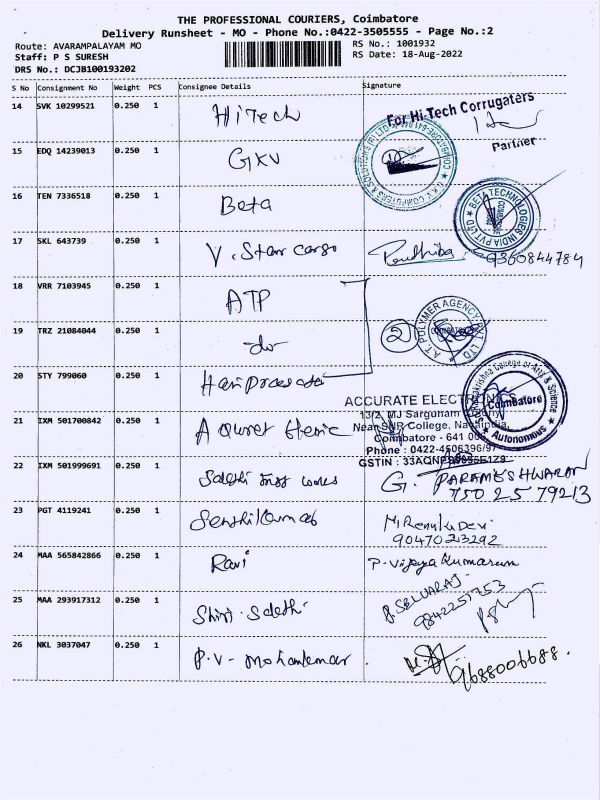 THE PROFESSIONAL COURIERS, Coimbatore
Delivery Runsheet - MO - Phone No.:0422-3505555 - Page No.:2
Route: AVARAMPALAYAM MO
RS No.: 1001932
Staff: P S SURESH
RS Date: 18-Aug-2022
DRS No.: DCJB100193202
S No Consignment No Weight PCS Consignee Details Signature
14 SVK 10299521 0.250 1 HiTech
For Hi-Tech Corrugaters
Partner
15 EDQ 14239013 0.250 1 GKV
G.K.V. COMPUTERS & SOLUTIONS (P) LTD
16 TEN 7336518 0.250 1 Beta
BETA TECHNOLOGIES INDIA PVT LTD
17 SKL 643739 0.250 1 V. Star cargo 9360844784
18 VRR 7103945 0.250 1 ATP
19 TRZ 21084044 0.250 1 do 2
A.T. POLYMER AGENCY PVT LTD
20 STY 799060 0.250 1 Hariprasada
College of Arts & Science
Coimbatore
Autonomous
21 IXM 501700842 0.250 1
ACCURATE
13/2, MJ Sargunam
Near SNR College,
Coimbatore - 641
Phone : 0422-4506396/97
GSTIN :
22 IXM 501999691 0.250 1 Sakthi works
G. PARAMESHWARAN
750 25 79213
23 PGT 4119241 0.250 1 Senthilkumar
M. Renuka Devi
9047023292
24 MAA 565842866 0.250 1 Ravi P. Vijaya Kumaran
25 MAA 293917312 0.250 1 Shiri. Sakthi
P. SELVARAJ
9842251753
26 NKL 3037047 0.250 1 P.V. Mohankumar
9688006688.